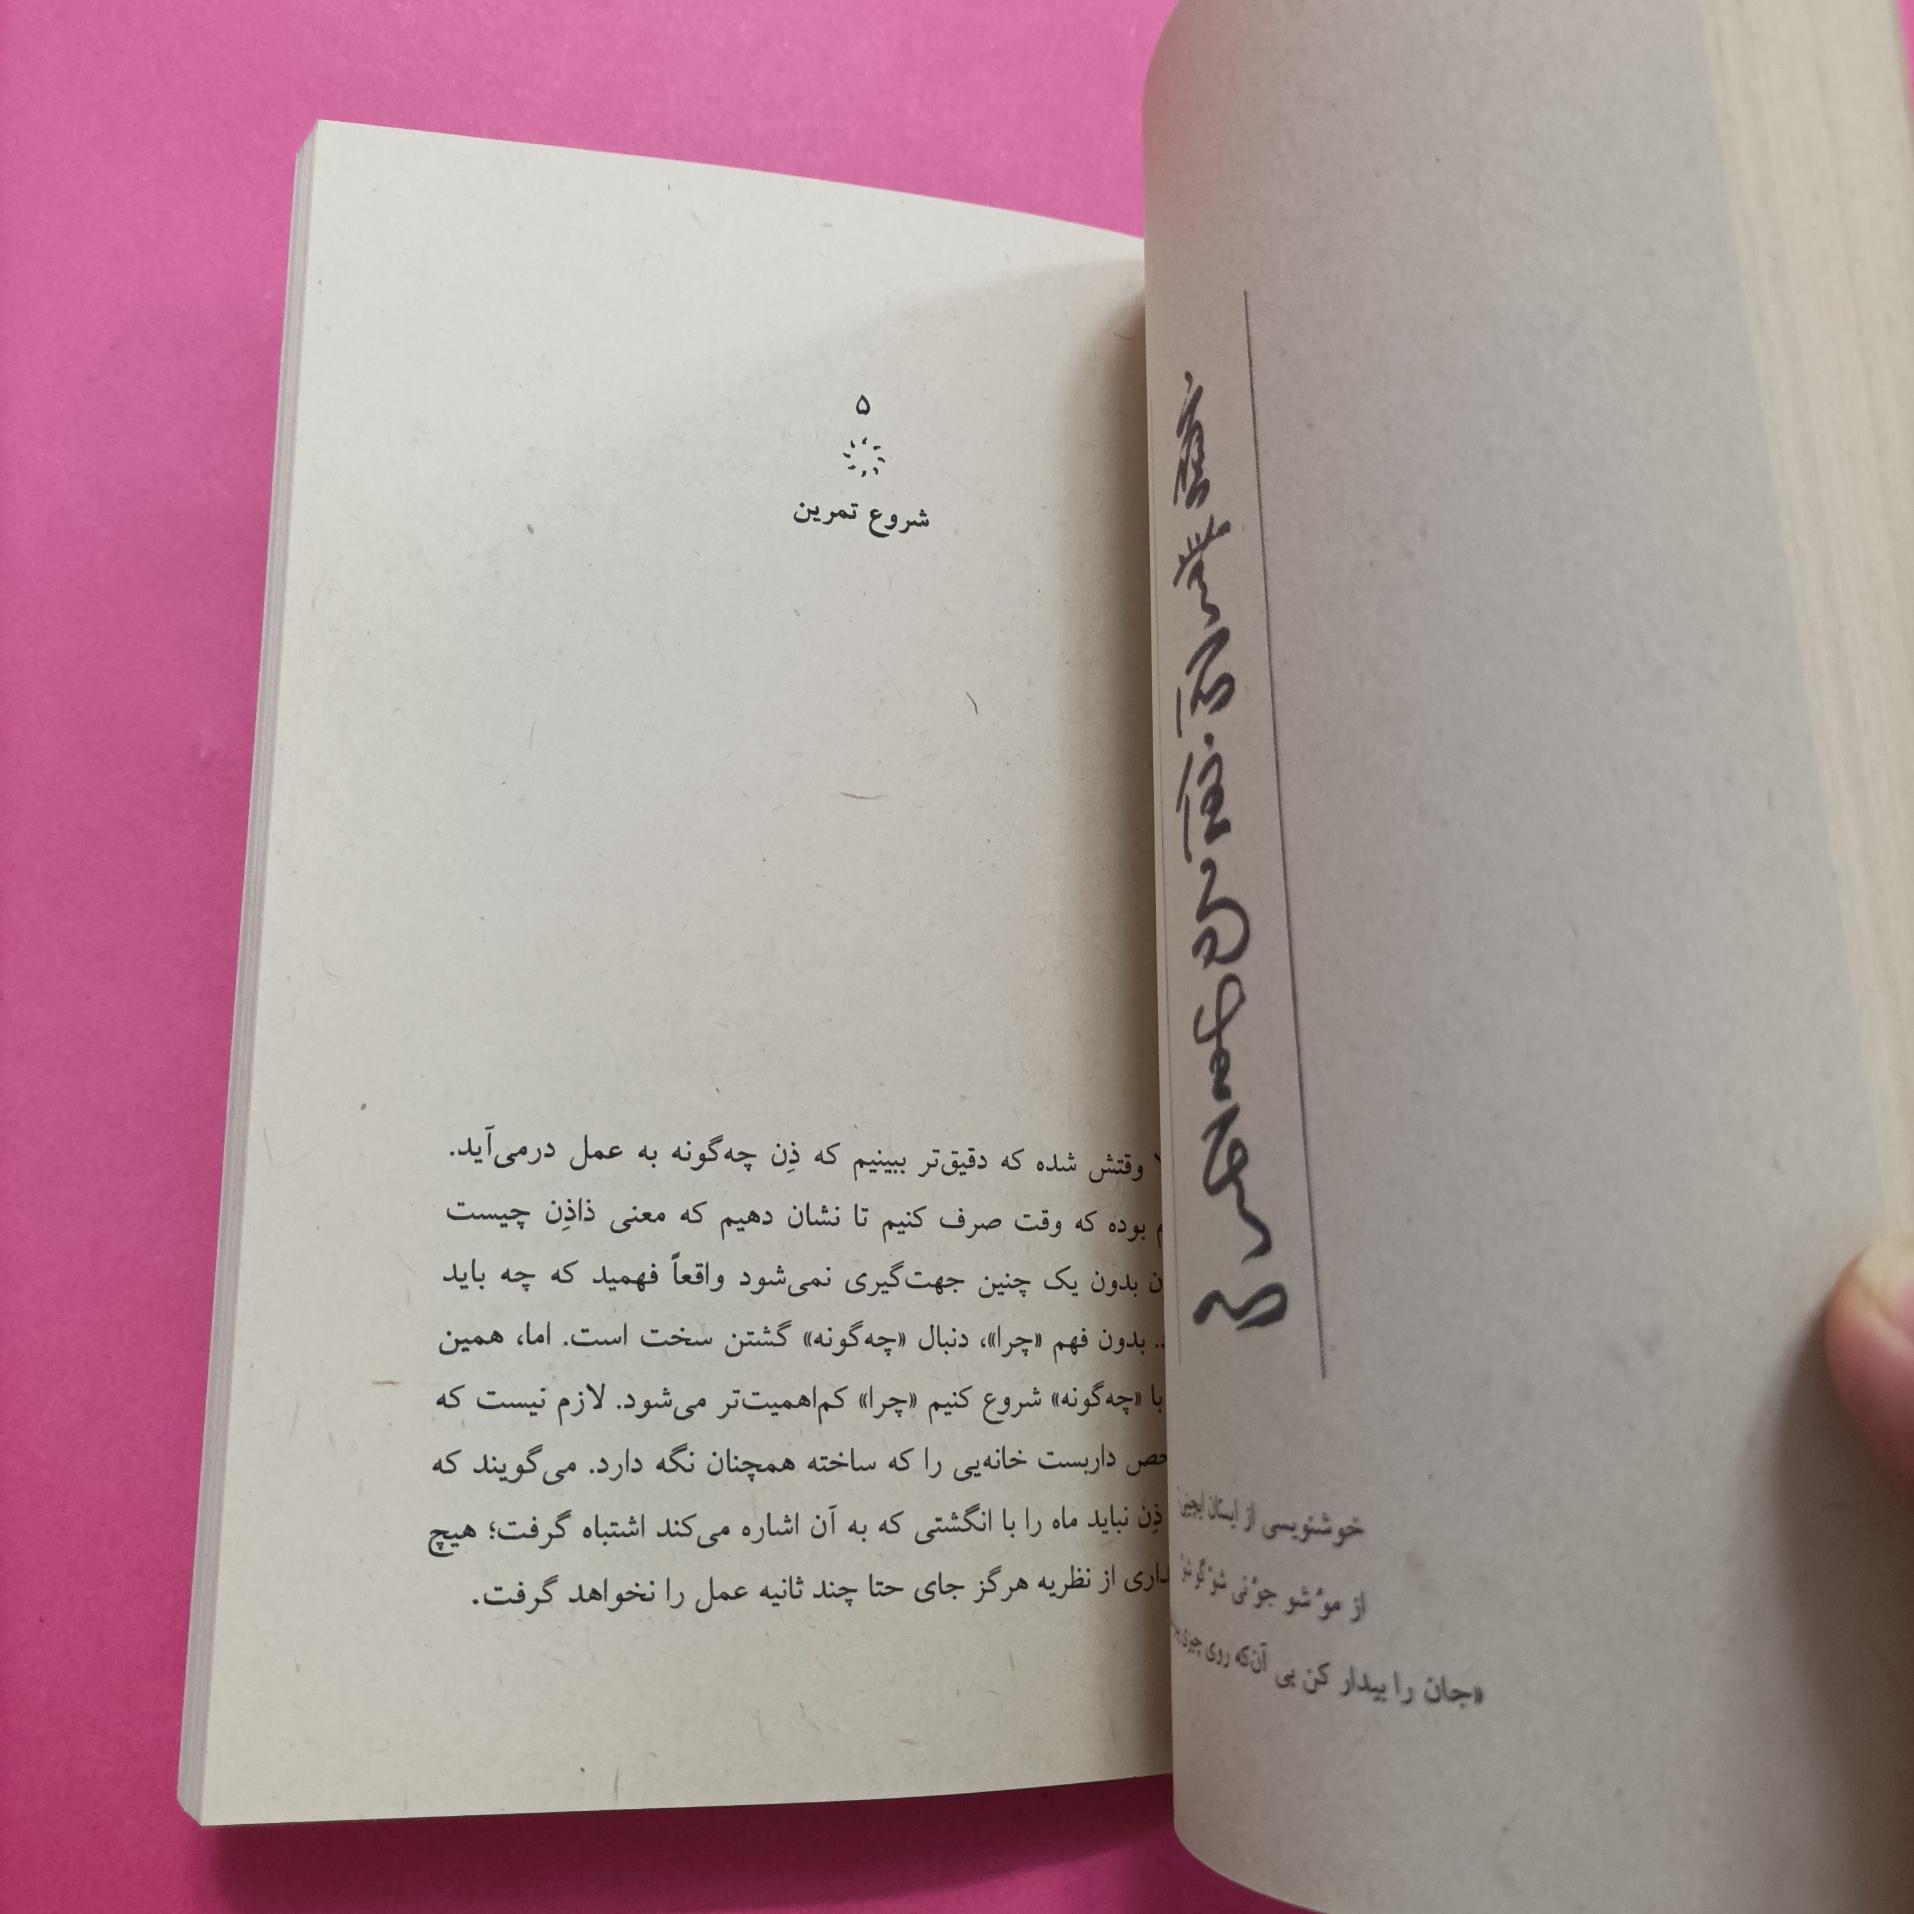 ۵
شروع تمرین
وقتش شده که دقیق‌تر ببینیم که ذِن چه‌گونه به عمل درمی‌آید.
بوده که وقت صرف کنیم تا نشان دهیم که معنی ذاذِن چیست
بدون یک چنین جهت‌گیری نمی‌شود واقعاً فهمید که چه باید
بدون فهم «چرا»، دنبال «چه‌گونه» گشتن سخت است. اما، همین
با «چه‌گونه» شروع کنیم «چرا» کم‌اهمیت‌تر می‌شود. لازم نیست که
داربست خانه‌یی را که ساخته همچنان نگه دارد. می‌گویند که
ذِن نباید ماه را با انگشتی که به آن اشاره می‌کند اشتباه گرفت؛ هیچ
از نظریه هرگز جای حتا چند ثانیه عمل را نخواهد گرفت.
خوشنویسی از
از
«جان را بیدار کن بی آن‌که روی